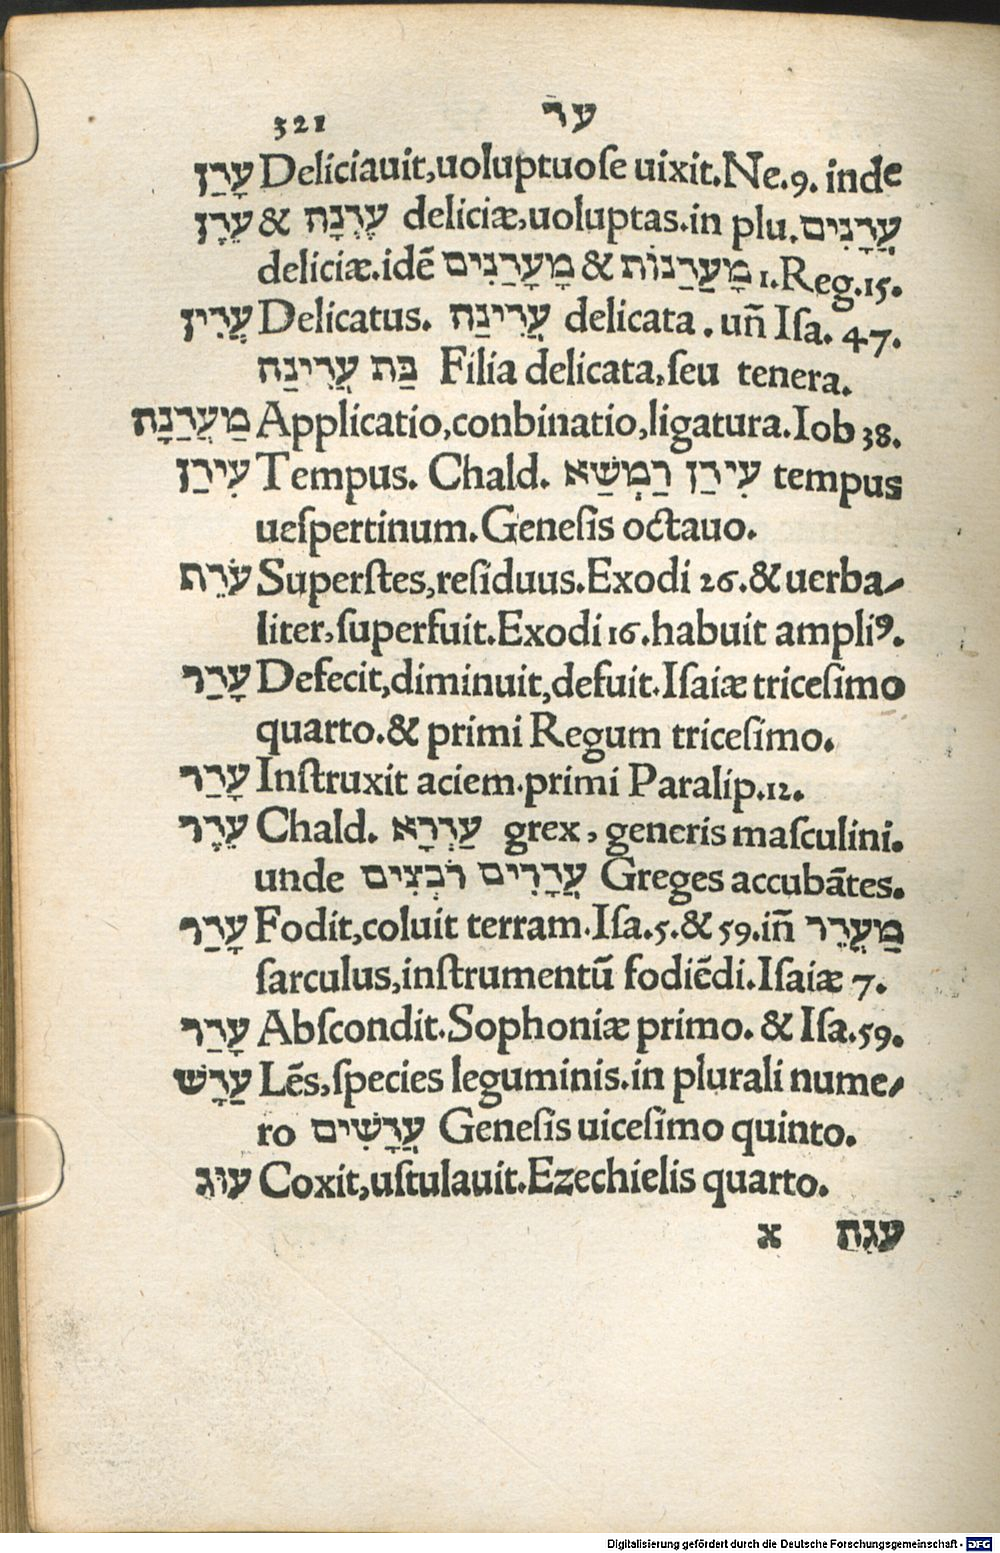 321 עד
עָדַן Deliciauit,uoluptuose uixit.Ne.9. inde
עֵדֶן & עֶדְנָה deliciæ,uoluptas.in plu.עֲדָנִים
deliciæ.idē מָעֲדָנִים & מָעֲדַנוֹת 1.Reg.15.
עֲדִין Delicatus. עֲדִינַה delicata.uñ Isa. 47.
בַּת עֲדִינַה Filia delicata,seu tenera.
מַעֲדַנָּה Applicatio,conbinatio,ligatura.Iob 38.
עִידַן Tempus. Chald. עִידַן רַמְשַׁא tempus
uespertinum.Genesis octauo.
עֹדֵף Superstes,residuus.Exodi 26.& uerba⸗
liter,superfuit.Exodi 16.habuit ampliꝰ.
עָדַר Defecit,diminuit,defuit.Isaiæ tricesimo
quarto.& primi Regum tricesimo.
עָדַר Instruxit aciem.primi Paralip.12.
עֵדֶר Chald. עַדְרָא grex, generis masculini.
unde עֲדָרִים רֹבְצִים Greges accubātes.
עָדַר Fodit,coluit terram.Isa.5.& 59.iñ מַעֲדֵר
sarculus,instrumentū fodiēdi.Isaiæ 7.
עָדַר Abscondit.Sophoniæ primo. & Isa.59.
עַדָשׁ Lēs,species leguminis.in plurali nume⸗
ro עֲדָשִׁים Genesis uicesimo quinto.
עוּג Coxit,ustulauit.Ezechielis quarto.
x עגה